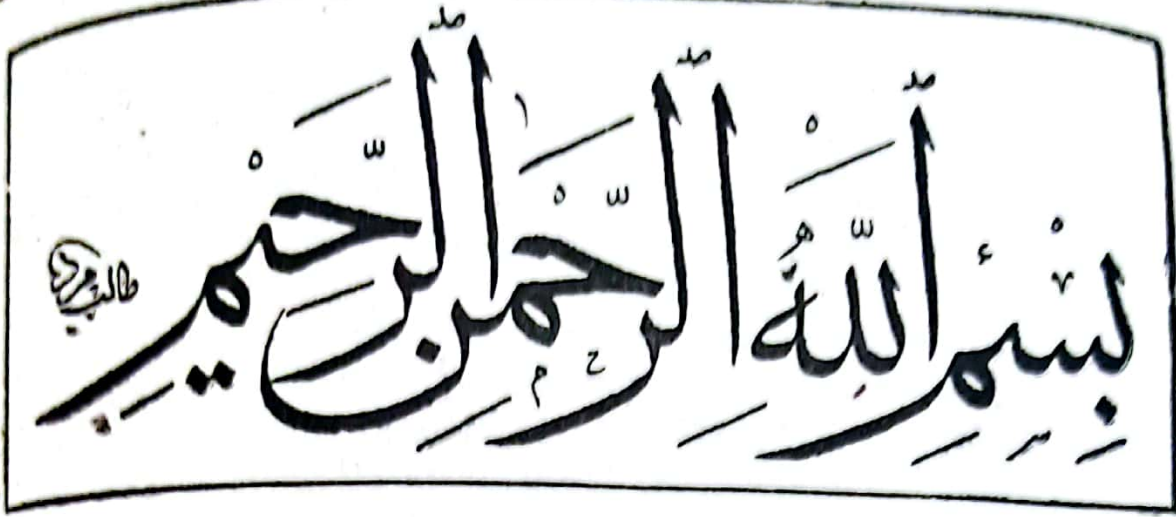 بِسْمِ ٱللَّهِ ٱلرَّحْمٰنِ ٱلرَّحِيْمِ